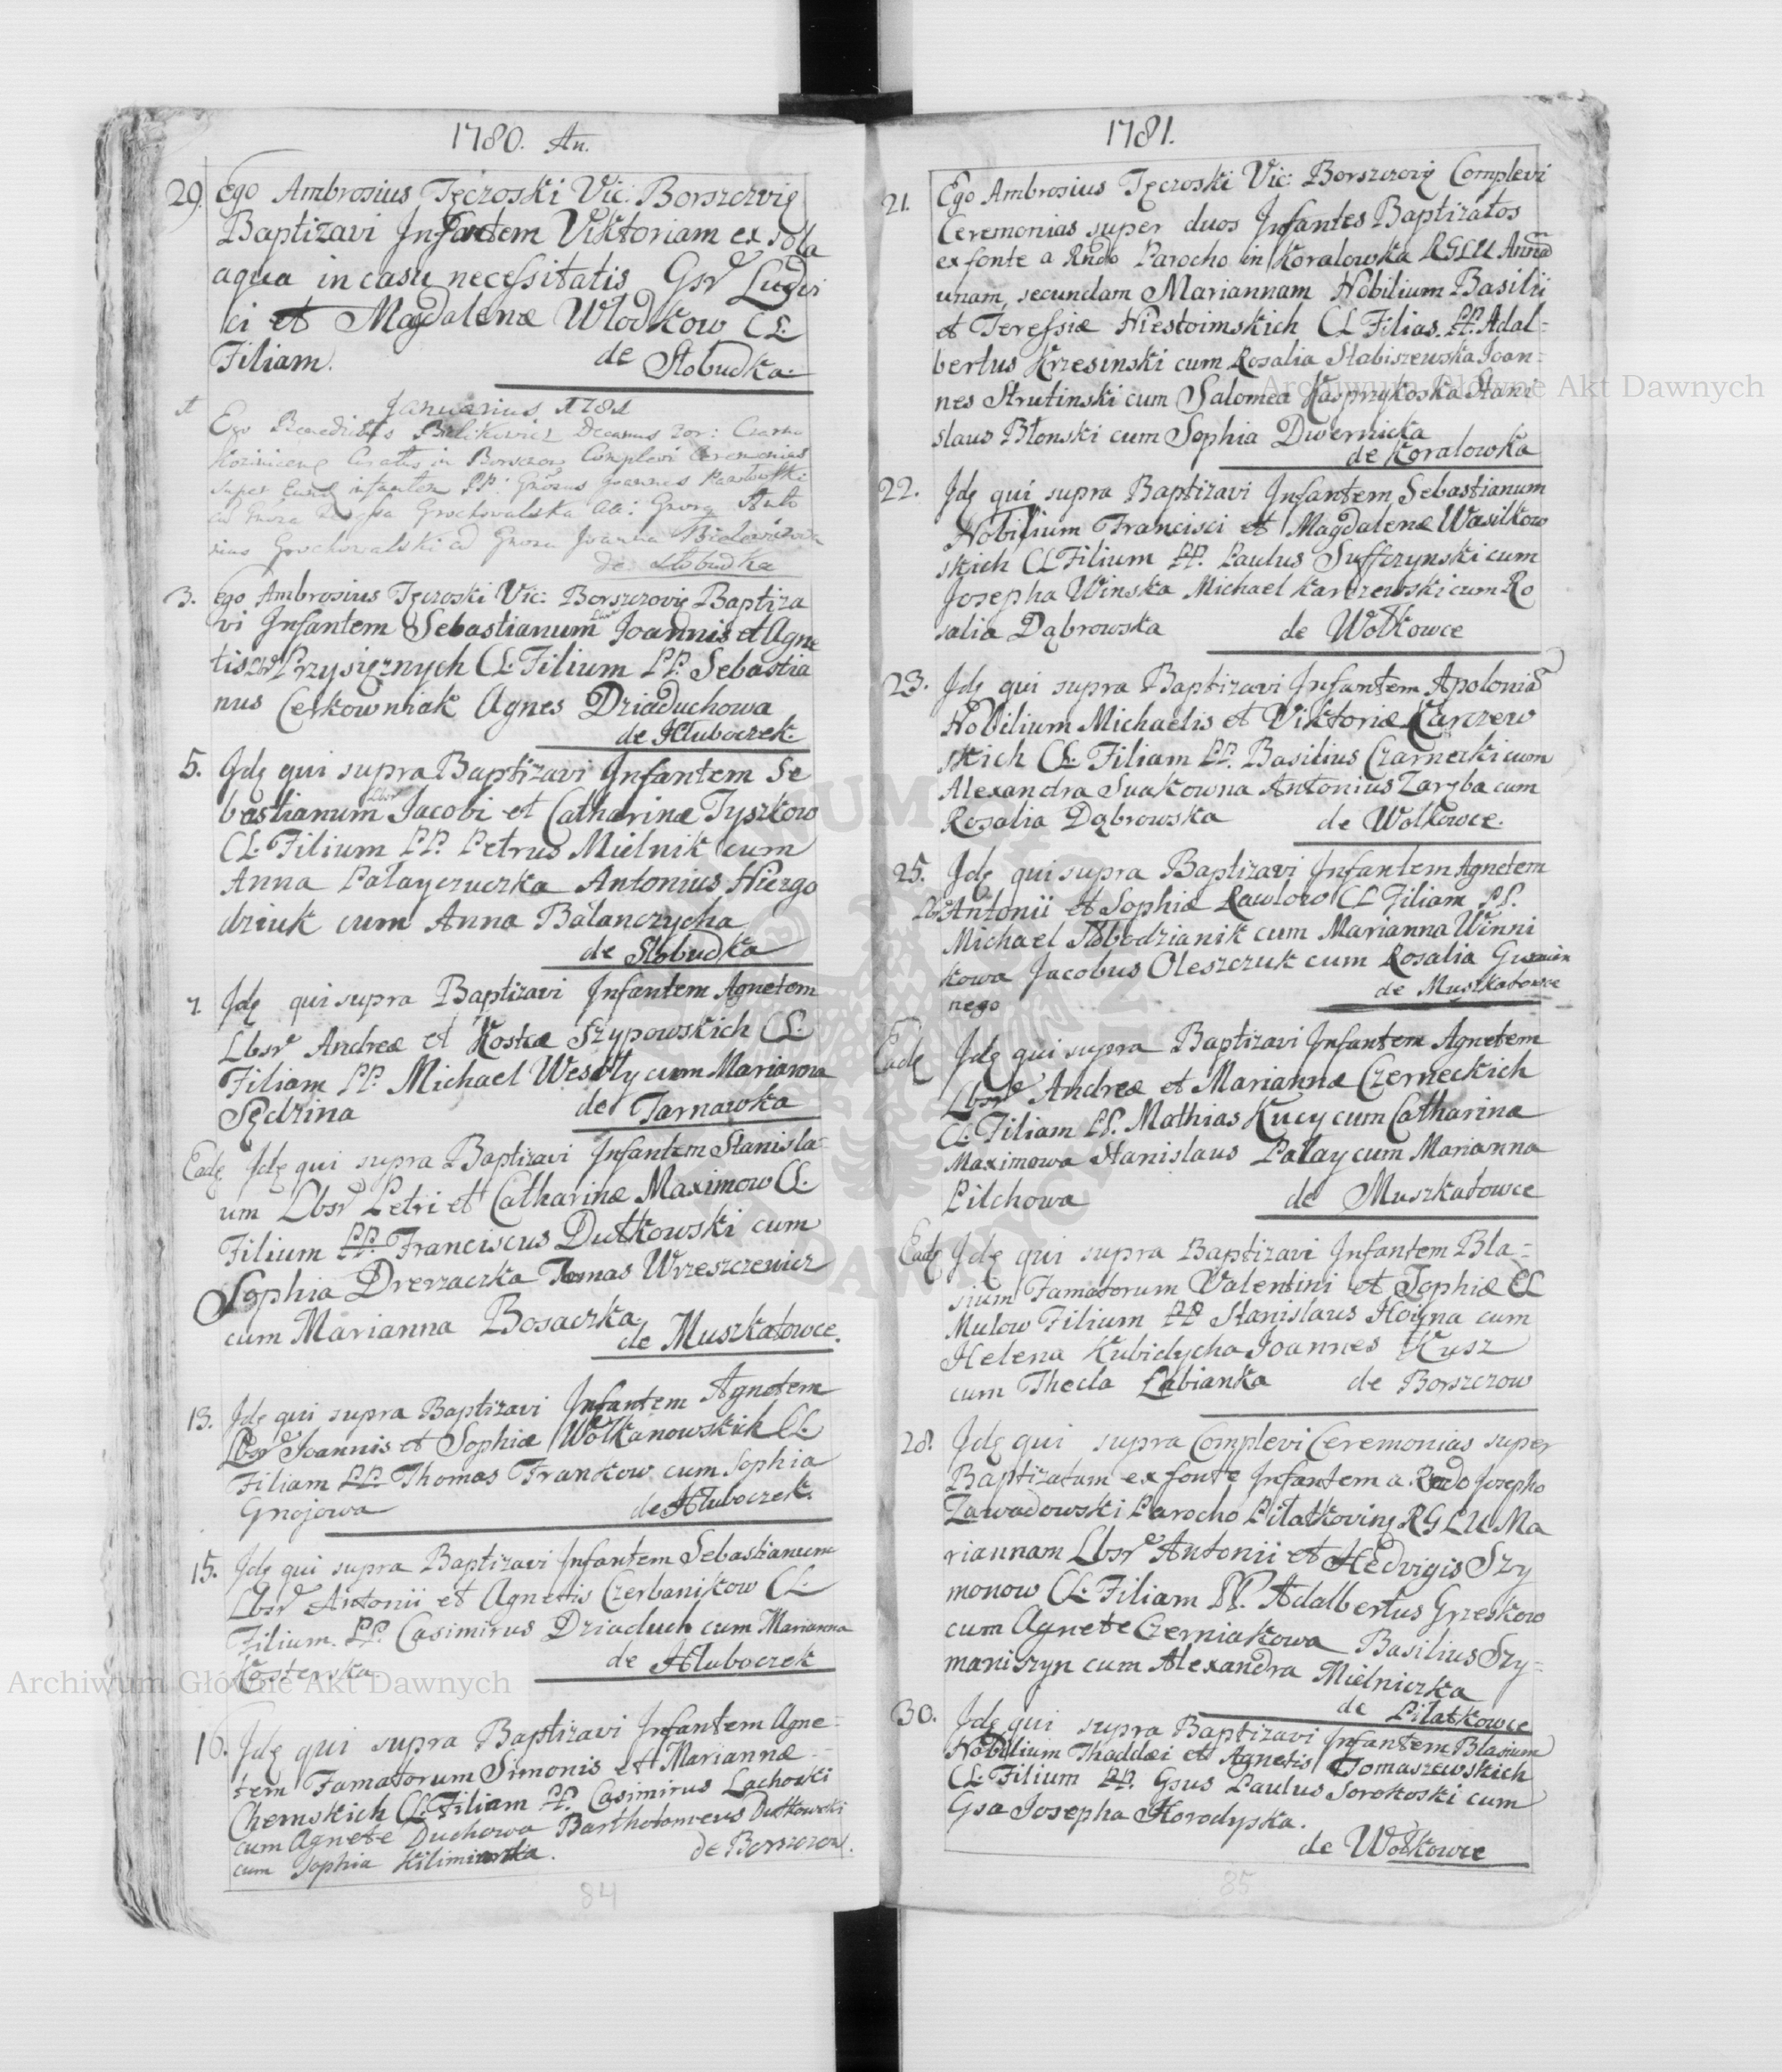 1780. An.
29. Ego Ambrosius Tęczoski Vic: Borszczvię
Baptizavi Infantem Viktoriam ex sola
aqua in casu necessitatis Gsr Ludvi
ci et Magdalenæ Włodkow CL.
Filiam. de Slobudka.
Januarius 1781
1 Ego Benedictus Decanus Czarno
Curatus in Borszczow Complevi Ceremonias
super infantem PP: Joannes
Grochowalska
Grochowalski Joanna
de Slobudka
3. Ego Ambrosius Tęczoski Vic: Borszczovię Baptiza
vi Infantem Sebastianum Lbsr Joannis et Agne
tis Przysięznych CL. Filium PP. Sebastia
nus Cerkowniak Agnes Dziaduchowa
de Hluboczek.
5. Jdę qui supra Baptizavi Infantem Se
bastianum Lbsr Jacobi et Catharinæ Tyszkow
CL. Filium PP. Petrus Mielnik cum
Anna Pałayczuczka Antonius Niezgo
dziuk cum Anna Bałanczycha
de Slobudka
7. Jdę qui supra Baptizavi Infantem Agnetem
Lbsr Andreæ et Kostæ Szypowskich CL.
Filiam PP. Michael Wesoły cum Marianna
Sędzina de Tarnawka
Eadę Jdę qui supra Baptizavi Infantem Stanisla-
um Lbsr Petri et Catharinæ Maximow CL.
Filium PP. Franciscus Dutkowski cum
Sophia Drerzaczka Tomas Wrzeszczewicz
cum Marianna Bosaczka
de Muszkatowce.
13. Jdę qui supra Baptizavi Infantem Agnetem
Lbsr Joannis et Sophiæ Wołkanowskich CL.
Filiam PP. Thomas Frankow cum Sophia
Gnojowa de Hluboczek.
15. Jdę qui supra Baptizavi Infantem Sebastianum
Lbsr Antonii et Agnetis Czerbanikow CL.
Filium. PP. Casimirus Dziaduch cum Marianna
Kosterska. de Hluboczek
16. Jdę qui supra Baptizavi Infantem Agne-
tem Famatorum Simonis et Mariannæ
Chemskich CL. Filiam PP. Casimirus Lachoski
cum Agnete Duchowa Bartholomeus Dutkowski
cum Sophia de Borszczow.
84
1781.
21. Ego Ambrosius Tęczoski Vic: Borszczovię Complevi
Ceremonias super duos Infantes Baptizatos
ex fonte a Rndo Parocho in Koralowka RGLU Annā
unam, secundam Mariannam Nobilium Basilii
et Teressiæ Niestoimskich CL Filias. PP. Adal-
bertus Krzesinski cum Rosalia Slabiszewska Joan-
nes Strutinski cum Salomea Kasprzykoska Stani
slaus Błonski cum Sophia Dwernicka
de Koralowka
22. Jdę qui supra Baptizavi Infantem Sebastianum
Nobilium Francisci et Magdalenæ Wasilkow
skich CL Filium PP. Paulus Suffczynski cum
Josepha Winska Michael Karczewski cum Ro
salia Dąbrowska de Wołkowce
23. Jdę qui supra Baptizavi Infantem Apoloniā
Nobilium Michaelis et Viktoriæ Karczew
skich CL. Filiam PP. Basilius Czarnecki cum
Alexandra Suakowna Antonius Zaręba cum
Rosalia Dąbrowska de Wołkowce.
25. Jdę qui supra Baptizavi Infantem Agnetem
Lbsr Antonii et Sophiæ Rawlow CL Filiam PP.
Michael Słobodzianik cum Marianna Winni
kowa Jacobus Oleszczuk cum Rosalia
nego de Muszkatowce
Eadę Jdę qui supra Baptizavi Infantem Agnetem
Lbsr Andreæ et Mariannæ Czerneckich
CL. Filiam PP. Mathias Kucy cum Catharina
Maximowa Stanislaus Pałay cum Marianna
Pilchowa de Muszkatowce
Eadę Jdę qui supra Baptizavi Infantem Bla-
sium Famatorum Valentini et Sophiæ CL
Mulow Filium PP Stanislaus Hoyna cum
Helena Kubidycha Joannes Kusz
cum Thecla Labianka de Borszczow
28. Jdę qui supra Complevi Ceremonias super
Baptizatam ex fonte Infantem a Rndo Josepho
Zawadowski Parocho Piłatkovinę RGLU Ma
riannam Lbsr Antonii et Hedvigis Szy
monow CL. Filiam PP. Adalbertus Grzeskow
cum Agnete Czerniakowa Basilius Szy-
maniszyn cum Alexandra Mielniczka
de Piłatkowce
30. Jdę qui supra Baptizavi Infantem Blasium
Nobilium Thaddæi et Agnetis Tomaszewskich
CL. Filium PP. Gsus Paulus Sorokoski cum
Gsa Josepha Horodyska.
de Wołkowce
85
Archiwum Główne Akt Dawnych
Archiwum Główne Akt Dawnych